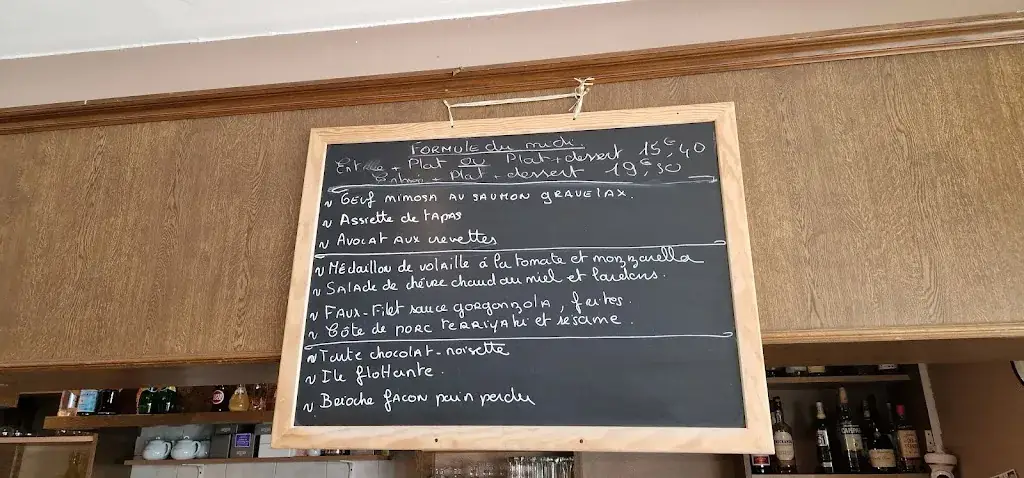 FORMULE du midi.
Entrée + Plat ou Plat + dessert 15€,40
Entrée + Plat + dessert 19€,30
~ Oeuf mimosa au saumon gravelax.
~ Assiette de tapas
~ Avocat aux crevettes
~ Médaillon de volaille à la tomate et mozzarella
~ Salade de chèvre chaud au miel et lardons.
~ Faux-filet sauce gorgonzola, frites.
~ Côte de porc terriyaki et sésame.
~ Tarte chocolat-noisette
~ Ile flottante.
~ Brioche façon pain perdu